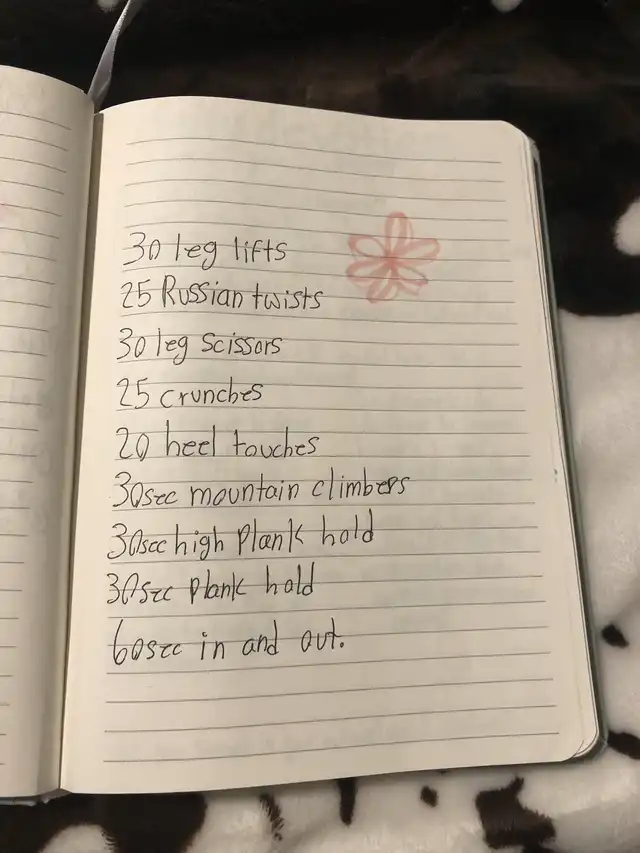 30 leg lifts
25 Russian twists
30 leg scissors
25 crunches
20 heel touches
30sec mountain climbers
30sec high plank hold
30sec plank hold
60sec in and out.